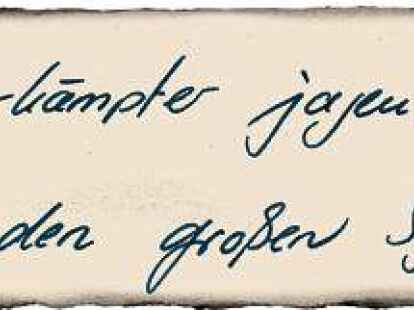 -kämpfer jagen
den großen S